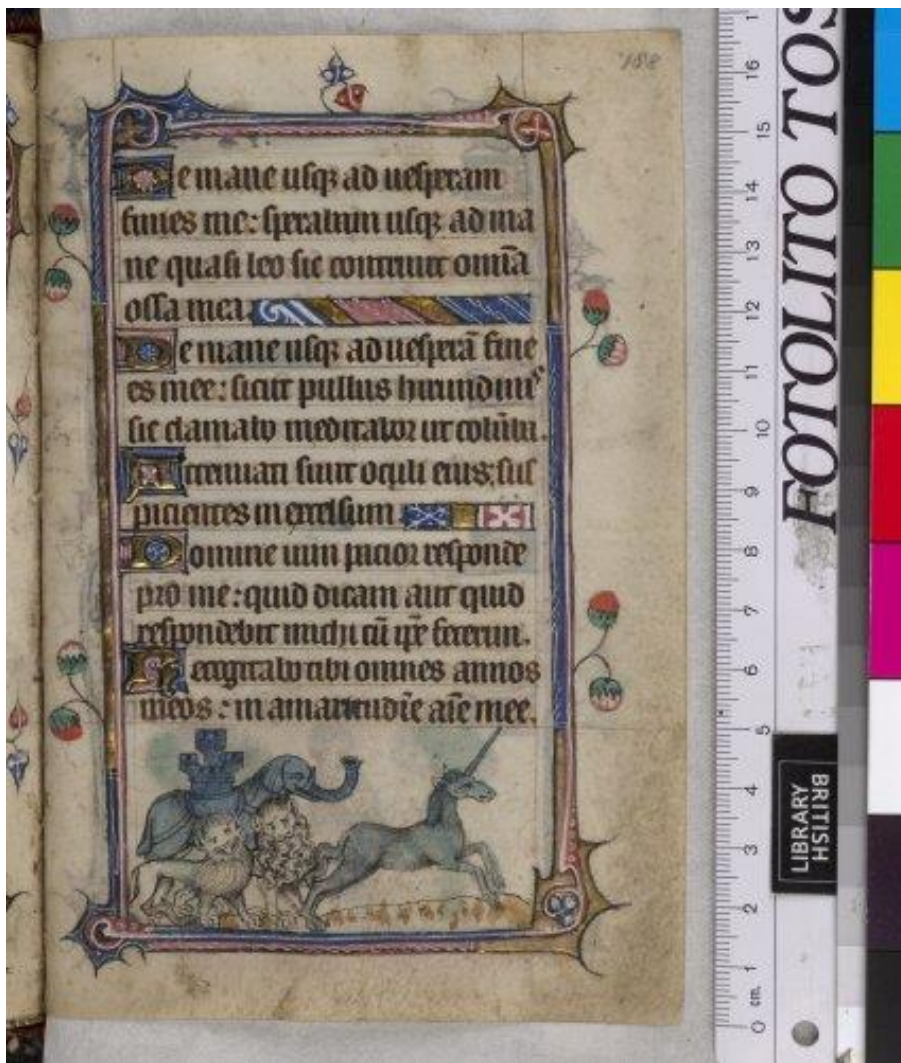 188
De mane usqꝫ ad uesperam
finies me: sperabam usqꝫ ad ma
ne quasi leo sic contriuit oīa
ossa mea.
De mane usqꝫ ad uesperā fine
es mee: sicut pullus hirundinis
sic clamabo meditabor ut colūba.
Attenuati sunt oculi eius: sus
picientes in excelsum
Domine uim pacior responde
pro me: quid dicam aut quid
respondebit michi cū ip̄e fecerim.
Recogitabo tibi omnes annos
meos: in amaritudīe aīe mee.
FOTOLITO TOS
BRITISH
LIBRARY
16
15
14
13
12
11
10
9
8
7
6
5
4
3
2
1 cm.
0